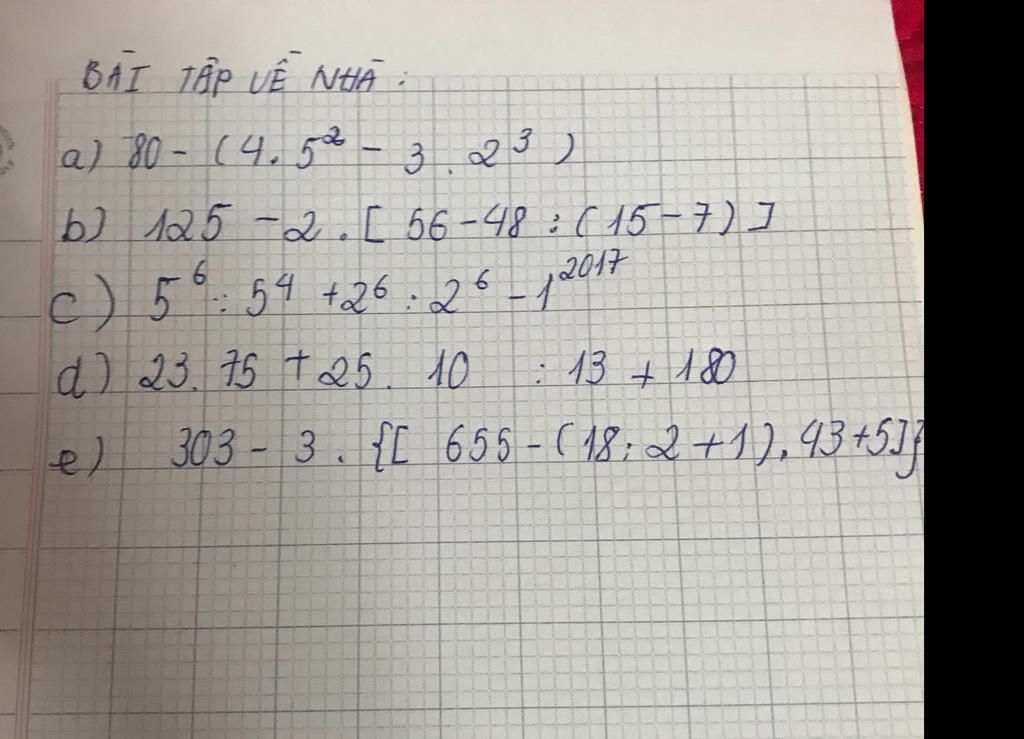 BÀI TẬP VỀ NHÀ :
a) 80 - (4. 5² - 3 . 2³ )
b) 125 - 2 . [ 56 - 48 : (15 - 7) ]
c) 5⁶ : 5⁴ + 2⁶ : 2⁶ - 1²⁰¹⁷
d) 23. 75 + 25. 10 : 13 + 180
e) 303 - 3 . {[ 655 - (18 : 2 + 1). 43 + 5]}